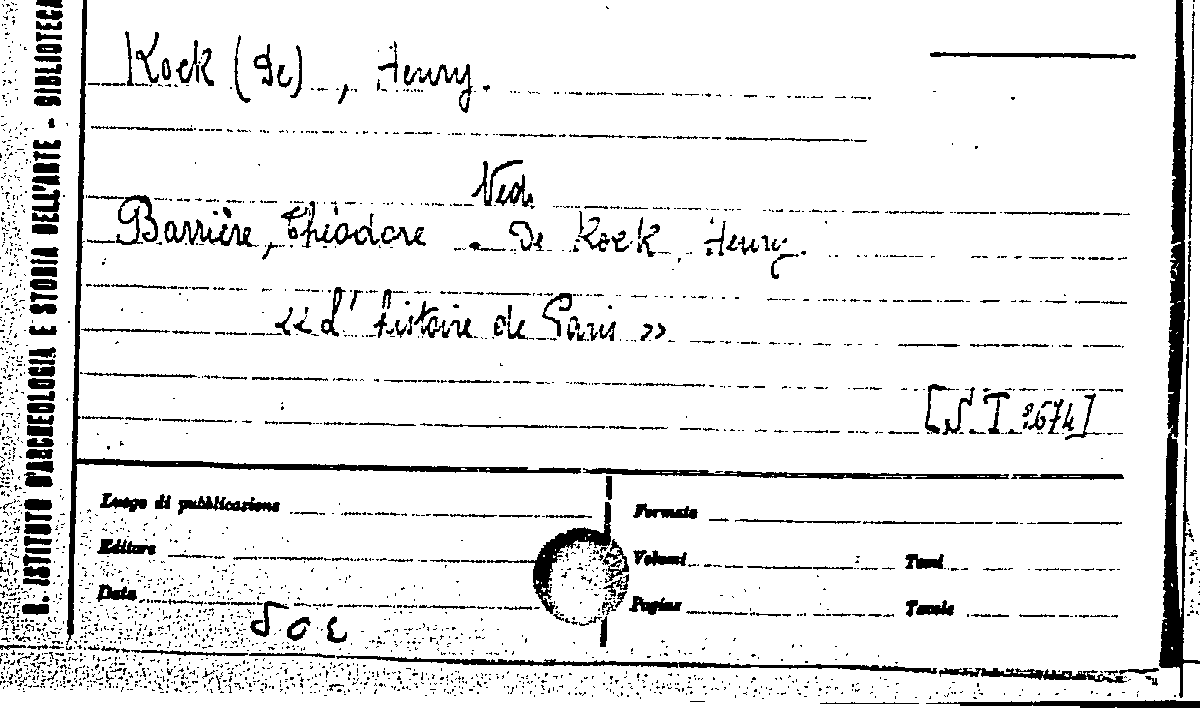 R. ISTITUTO D'ARCHEOLOGIA E STORIA DELL'ARTE - BIBLIOTECA
Kock (De), Henry.
Vedi
Barrière, Théodore - De Kock, Henry.
<< L'histoire de Paris >>
Luogo di pubblicazione
Formato
Editore
Volumi
Tomi
Data
Pagine
Tavole